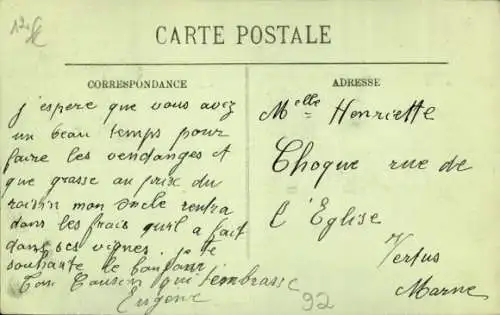 CARTE POSTALE
CORRESPONDANCE
j'espere que vous avez
un beau temps pour
faire les vendanges et
que grasse au prix du
raisin mon oncle rentra
dans les frais qu'il a fait
dans ses vignes. je te
souhaite le bonjour
Ton Cousin qui t'embrasse
Eugene
ADRESSE
Melle Henriette
Choque rue de
l'Eglise
Vertus
Marne
92